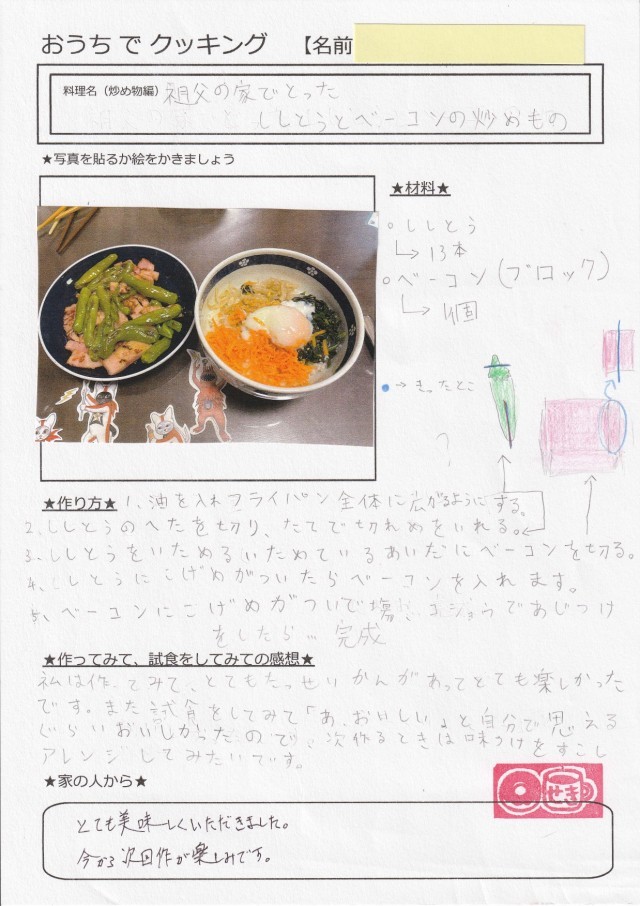 おうち で クッキング 【名前
料理名（炒め物編）祖父の家でとった
ししとうとベーコンの炒めもの
★写真を貼るか絵をかきましょう
★材料★
○ししとう
↳13本
○ベーコン(ブロック)
↳4個
●→きったとこ
?
★作り方★ 1、油を入れフライパン全体に広がるようにする。
2、ししとうのへたを切り、たてで切れめをいれる。
3、ししとうをいためるいためているあいだにベーコンを切る。
4、ししとうにこげめがついたらベーコンを入れます。
5、ベーコンにこげめがついで塩、こしょうであじつけ
をしたら… 完成
★作ってみて、試食をしてみての感想★
私は作ってみて、とてもたっせいかんがあってとても楽しかった
です。また試食をしてみて「あ、おいしい。」と自分で思える
ぐらいおいしかったので、次作るときは味つけをすこし
アレンジしてみたいです。
★家の人から★
せき
とても美味しくいただきました。
今から次回作が楽しみです。